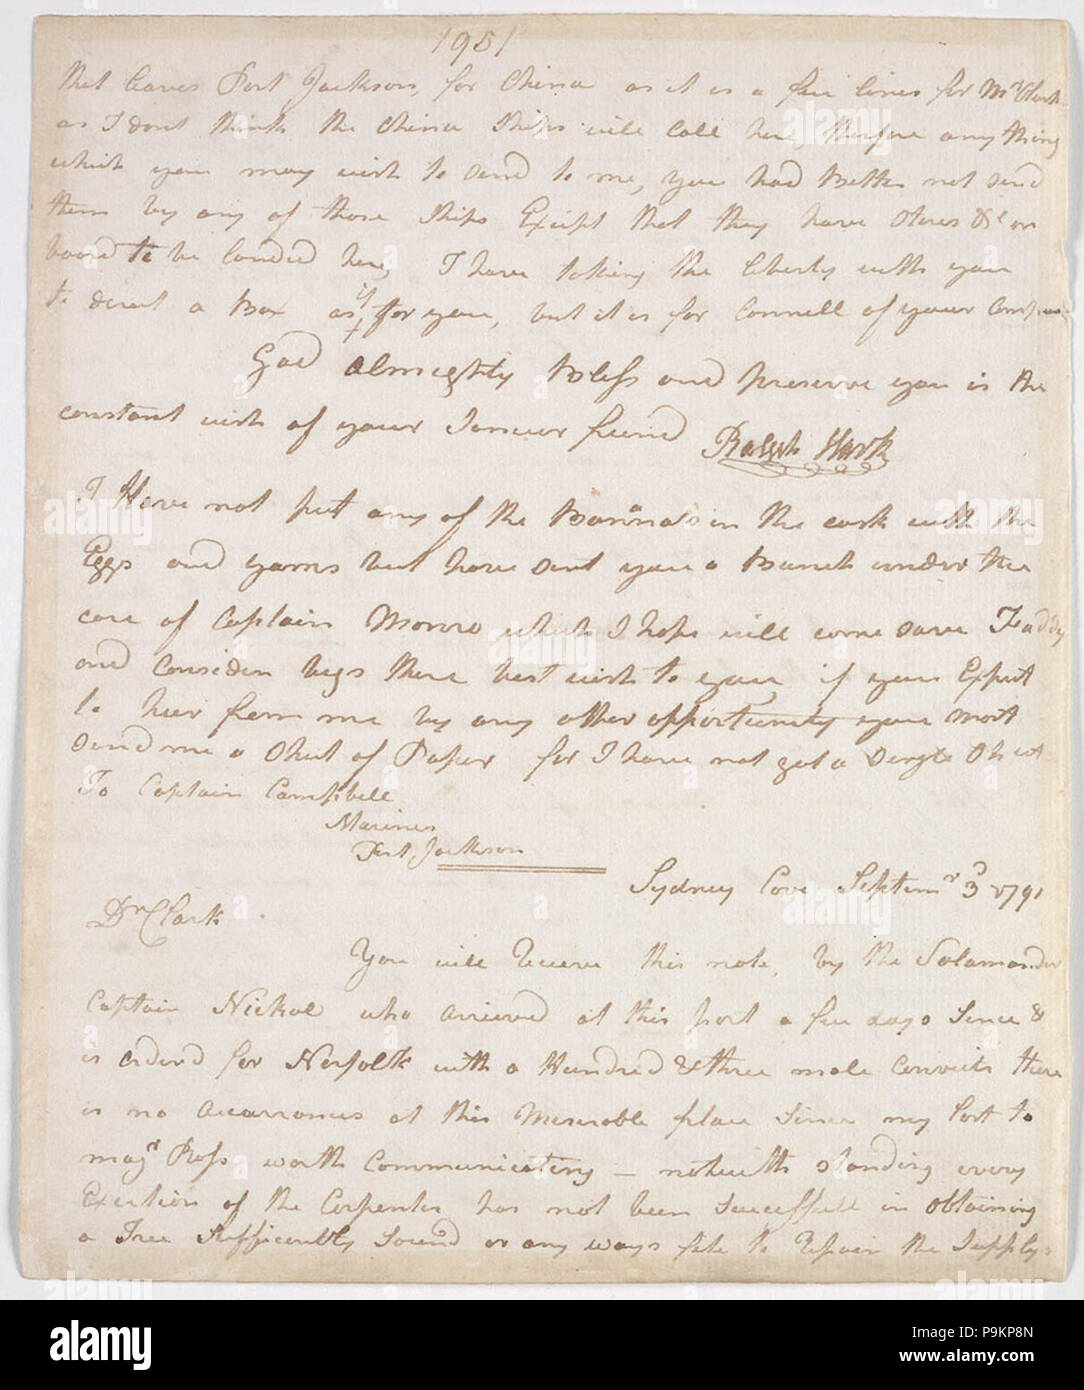 1951
that leaves Port Jackson, for China as it is a few lines for Mrs Clark
as I dont think the China Ships will Call here therfore any thing
which you may wish to send to me, you had better not send
them by any of those Ships Except that they have Stores &c on
board to be landed here, I have taking the liberty with you
to direct a Box as if for you, but it is for Connell of your Company
God Almighty Bless and preserve you is the
constant wish of your Sincer friend Ralph Clark
I Have not put any of the Banana's in the cask with the
Eggs and yams but have sent you a Bunch under the
care of Captain Monroe which I hope will come save Feaddy
and Considen begs there best wish to you, if you Expect
to hear from me by any other opportunity you most
send me a Sheet of Paper for I have not got a Single Sheet
To Captain Campbell
Marines
Port Jackson
Sydney Cove Septemr 3d 1791
Dr Clark
You will receve this note, by the Salamander
Captain Nichol who arrived at this port a few days since &
is orderd for Norfolk with a Hundred & three male Convicts there
is no Accurrances at this Miserable place Since my last to
majr Ross worth Communicating — notwith standing every
Exertion of the Carpenter has not been Successfull in obtaining
a Tree Sufficently Sound or any ways fitt to Repair the Supply's
alamy
Image ID: P9KP8N
www.alamy.com